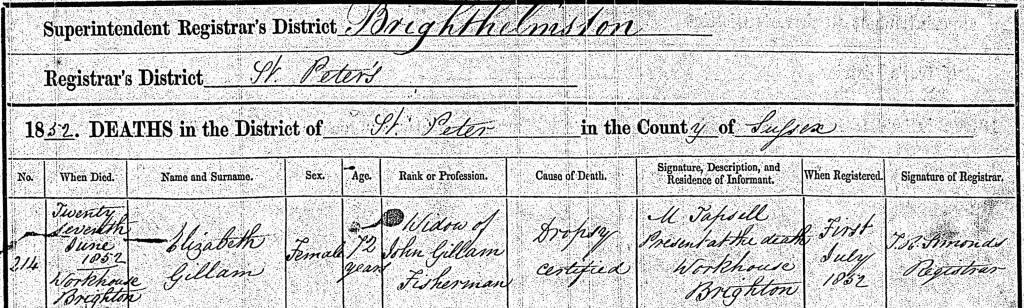 Superintendent Registrar's District Brighthelmston
Registrar's District St. Peter's
1852. DEATHS in the District of St. Peter in the County of Sussex
No. When Died. Name and Surname. Sex. Age. Rank or Profession. Cause of Death. Signature, Description, and Residence of Informant. When Registered. Signature of Registrar.
214
Twenty
Seventh
June
1852
Workhouse
Brighton
Elizabeth
Gillam
Female
72
years
Widow of
John Gillam
Fisherman
Dropsy
certified
M Tapsell
Present at the death
Workhouse
Brighton
First
July
1852
Simonds
Registrar